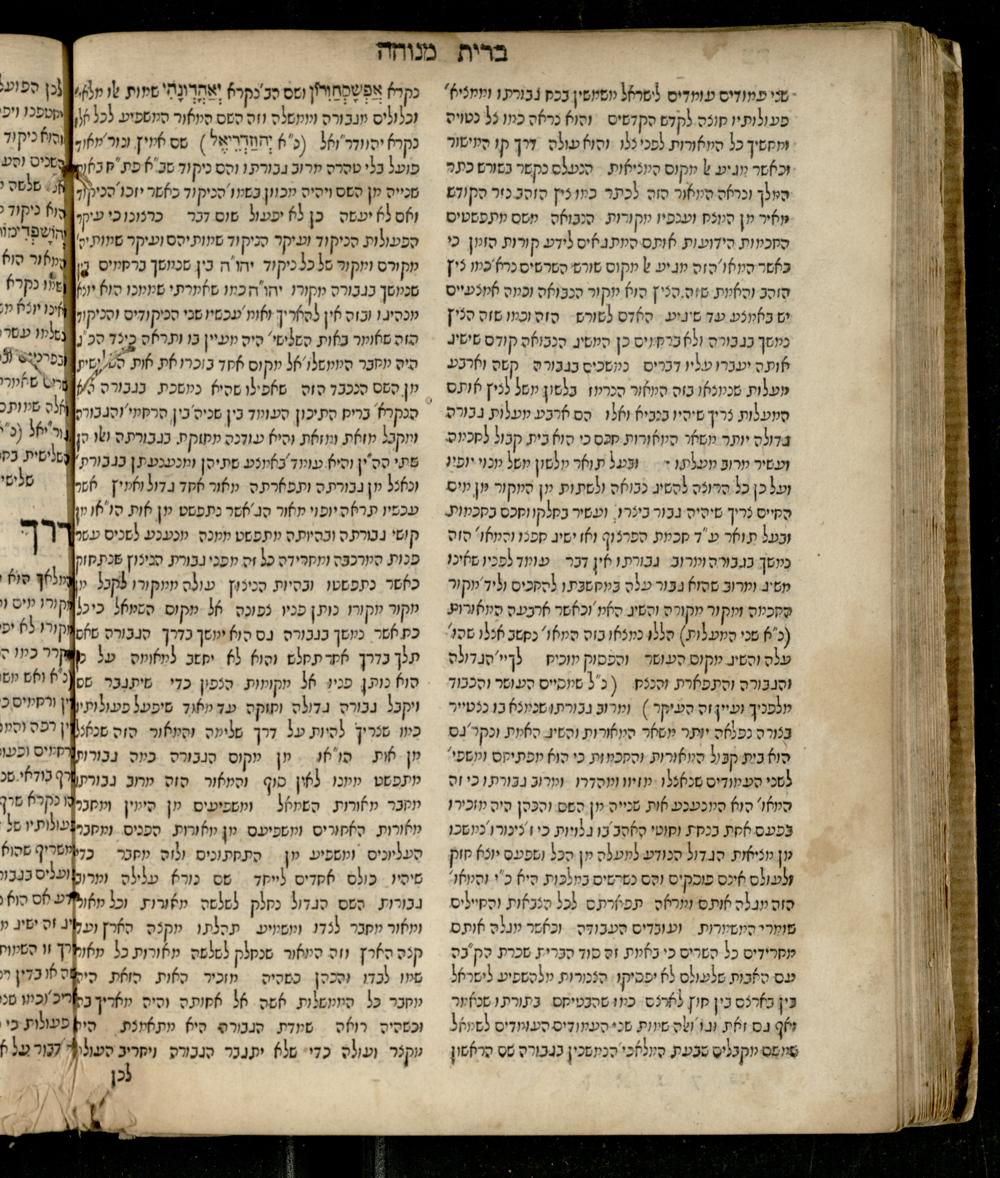 ברית מנוחה
שני עמודים עומדים לישראל משמשין בכח גבורתו וממציא׳
פעולותיו חוצה לקדש הקדשים והוא נראה כמו גל נטויה
ומחשיך כל המאורות לפני גלו והוא עולה דרך קו המישור
וכאשר מגיע אל מקום המציאות הנעלם נקשר בשורש כתר
המלך ונראה המאור הזה לכתר כמו ציץ הזהב נזר הקודש
מאיר מן המצח וענפיו מקורות הנבואה משם מתפשטים
החכמות הידועות אותם המתנאים לידע קורות הזמן כי
כאשר המאו׳ הזה מגיע אל מקום שורש השרשים נרא׳ כמו ציץ
הזהב והאמת שזה הציץ הוא מקור הנבואה וכמה אמצעיים
יש באמצע עד שיגיע האדם לשורש הזה וכמו שזה הציץ
נמשך בגבורה ולא ברחמים כן המשיג הנבואה קודם שישיג
אותה יעברו עליו דברים נמשכים בגבורה קשה וארבע
מעלות שנמצאו בזה המאור הנרמז בלשון משל לציץ אותם
המעלות צריך שיהיו בנביא ואלו הם ארבע מעלות גבורה
גדולה יותר משאר המאורות חכם כי הוא בית קבול לחכמה
ועשיר מרוב מעלתו ובעל תואר מלשון משל מנוי יופיו
ועל כן כל הרוצה להשיג נבואה ולשתות מן המקור מן מים
החיים צריך שיהיה גבור ביצרו ועשיר בחלקו וחכם בחכמות
ובעל תואר ע״ד חכמת הפרצוף ואז ישיג חפצו והמאו׳ הזה
נמשך בגבורה ומרוב גבורתו אין דבר עומד לפניו שאינו
משיג ומרוב שהוא גבור עלה במחשבתו להחכים וליד׳ מקור
החכמה ומקור מקורה והשיג האמ׳ וכאשר ארבעה המאורות
(נ״א שני המעלות) הללו נמצאו בזה המאו׳ נחשב אצלו שהו׳
עלה והשיג מקום העושר והפסוק מוכיח לך יי׳ הגדולה
והגבורה והתפארת והנצח (נ״ל שמסיים העושר והכבוד
מלפניך ועיין זה העיקר) ומרוב גבורתו שנמצא בו נצטייר
בצורה נפלאה יותר משאר המאורות והשיג האמת ונקר׳ גם
הוא בית קבול המאורות והחכמות כי הוא מפתיחם ומשפי׳
לשני העמודים שנאצלו מזיוו ומהדרו ומרוב גבורתו כי זה
המאו׳ הוא המנענע אות שנייה מן השם והכהן היה מזכירו
בפעם אחת בנחת וחוטי האהב׳ בו גלויות כי ז׳ צינורו׳ נמשכו
מן מציאות הגדול הנודע למעלה מן הכל ושפעם יוצא חזק
ולעולם אינם פוסקים והם נשרשים במלכות היא כ״י והמאו׳
הזה מגלה אותם ומראה תפארתם לכל הצבאות והחיילים
שומרי המשמרות ועובדים העבודה וכאשר מגלה אותם
מחרידים כל השרים כי באמת זה סוד הברית שכרת הקב״ה
עם האבות שלעולם לא יפסיקו הצנורות מלהשפיע לישראל
בין בארצם בין חוץ לארצם כמו שהבטיחם בתורתו שנאמר
ואף גם זאת וגו׳ ואלה שמות שני העמודים העומדים לשמאל
שמשם מקבלים שבעת המלאכי׳ הנמשכין בגבורה שם הראשון
נקרא אֲפְשָׁסְחֲוְרוֹן ושם הב׳ נקרא יְאַהֲדְוֹנָהִי שמות אלו מלאי׳
וכלולים מגבורה וממשלה וזה השם המאור המשפיע לכל אלו
נקרא יהוודר״ואל (נ״א יְהוָוְדְרֵיאֵל) שם אמיץ וגור׳ מאוד
פועל בלי טהרה מרוב גבורתו והם ניקוד שב״א פת״ח באות
שנייה מן השם ויהיה מכוון בשמו׳ הניקוד כאשר יזכו׳ הניקוד
ואם לא יעשה כן לא יפעול שום דבר כרצונו כי עיקר
הפעולות הניקוד ועיקר הניקוד שמותיהם ועיקר שמותיה׳
מקורם ומקור של כל ניקוד יהו״ה בין שנמשך ברחמים בין
שנמשך בגבורה מקורו יהו״ה כמו שאמרתי שממנו הוא יוצא
מנהיגו ובזה אין להאריך ואומ׳ עכשיו שני הניקודים והניקוד
הזה שאומר באות השלישי׳ היה מעיין בו ותראה כיצד הכ״ג
היה מחבר הממשלו׳ אל מקום אחד בזכרו את אות השלישית
מן השם הנכבד הזה שאפילו שהיא נמשכת בגבורה היא
הנקרא׳ בריח התיכון העומד בין שניה׳ בין הרחמי׳ והגבורה
ומקבל מזאת ומזאת והיא עודנה מחזקת בגבורתה ואלו הן
שתי הה״ין והיא עומד׳ באמצע שתיהן ומנענעתן בגבורת׳
ונאצל מן גבורתה ותפארתה מאור אחד גדול ואמיץ אשר
עכשיו תראה יופוי מאור הג׳ אשר נתפשט מן אות הוא״ו מן
קושי גבורתה ובהיותה מתפשט ממנה מנענע לשנים עשר
פנות המרכבה ומחרידה כל זה מפני גבורת הניצוץ שנתחזק
כאשר נתפשטו ובהיות הניצוץ עולה ממקורו לקבל מן
מקור מקורו נותן פניו צפונה אל מקום השמאל כי כל
כח אשר נמשך בגבורה גם הוא ימשך בדרך הגבורה שאם
תלך בדרך אחר תחלש והוא לא יחשב למאומה על כן
הוא נותן פניו אל מקומות הצפון כדי שיתגבר שם
ויקבל גבורה גדולה וחזקה עד מאוד שיפעל פעולותיו
כמו שצריך להיות על דרך שלימה והמאור הזה שנאצל
מן אות הוא״ו מן מקום הגבורה כמה גבורות
מתפשט ממנו לאין סוף והמאור הזה מרוב גבורתו
מחבר מאורות השמאל ומשפיעים מן הימין ומחבר
מאורות האחורים ומשפיעם מן מאורות הפנים ומחבר
העליונים ומשפיע מן התחתונים ולזה מחבר כדי
שיהיו כולם אחדים לייחד שם נורא עלילה ומרוב
גבורות השם הגדול נחלק לשלשה מאורות וכל מאור
ומאור מחבר לצדו ומשמיע תהלתו מקצה הארץ ועד
קצה הארץ וזה המאור שנחלק לשלשה מאורות כל מאור
שמו לבדו והכהן כשהיה מזכיר האות הזאת היה
מחבר כל הממשלות אשה אל אחותה והיה מאריך בה
וכשהיה רואה שמדת הגבורה היא מתאמצת היה
מקצר ועולה כדי שלא יתגבר הגבורה ויחריב העולם
לכן
דרך